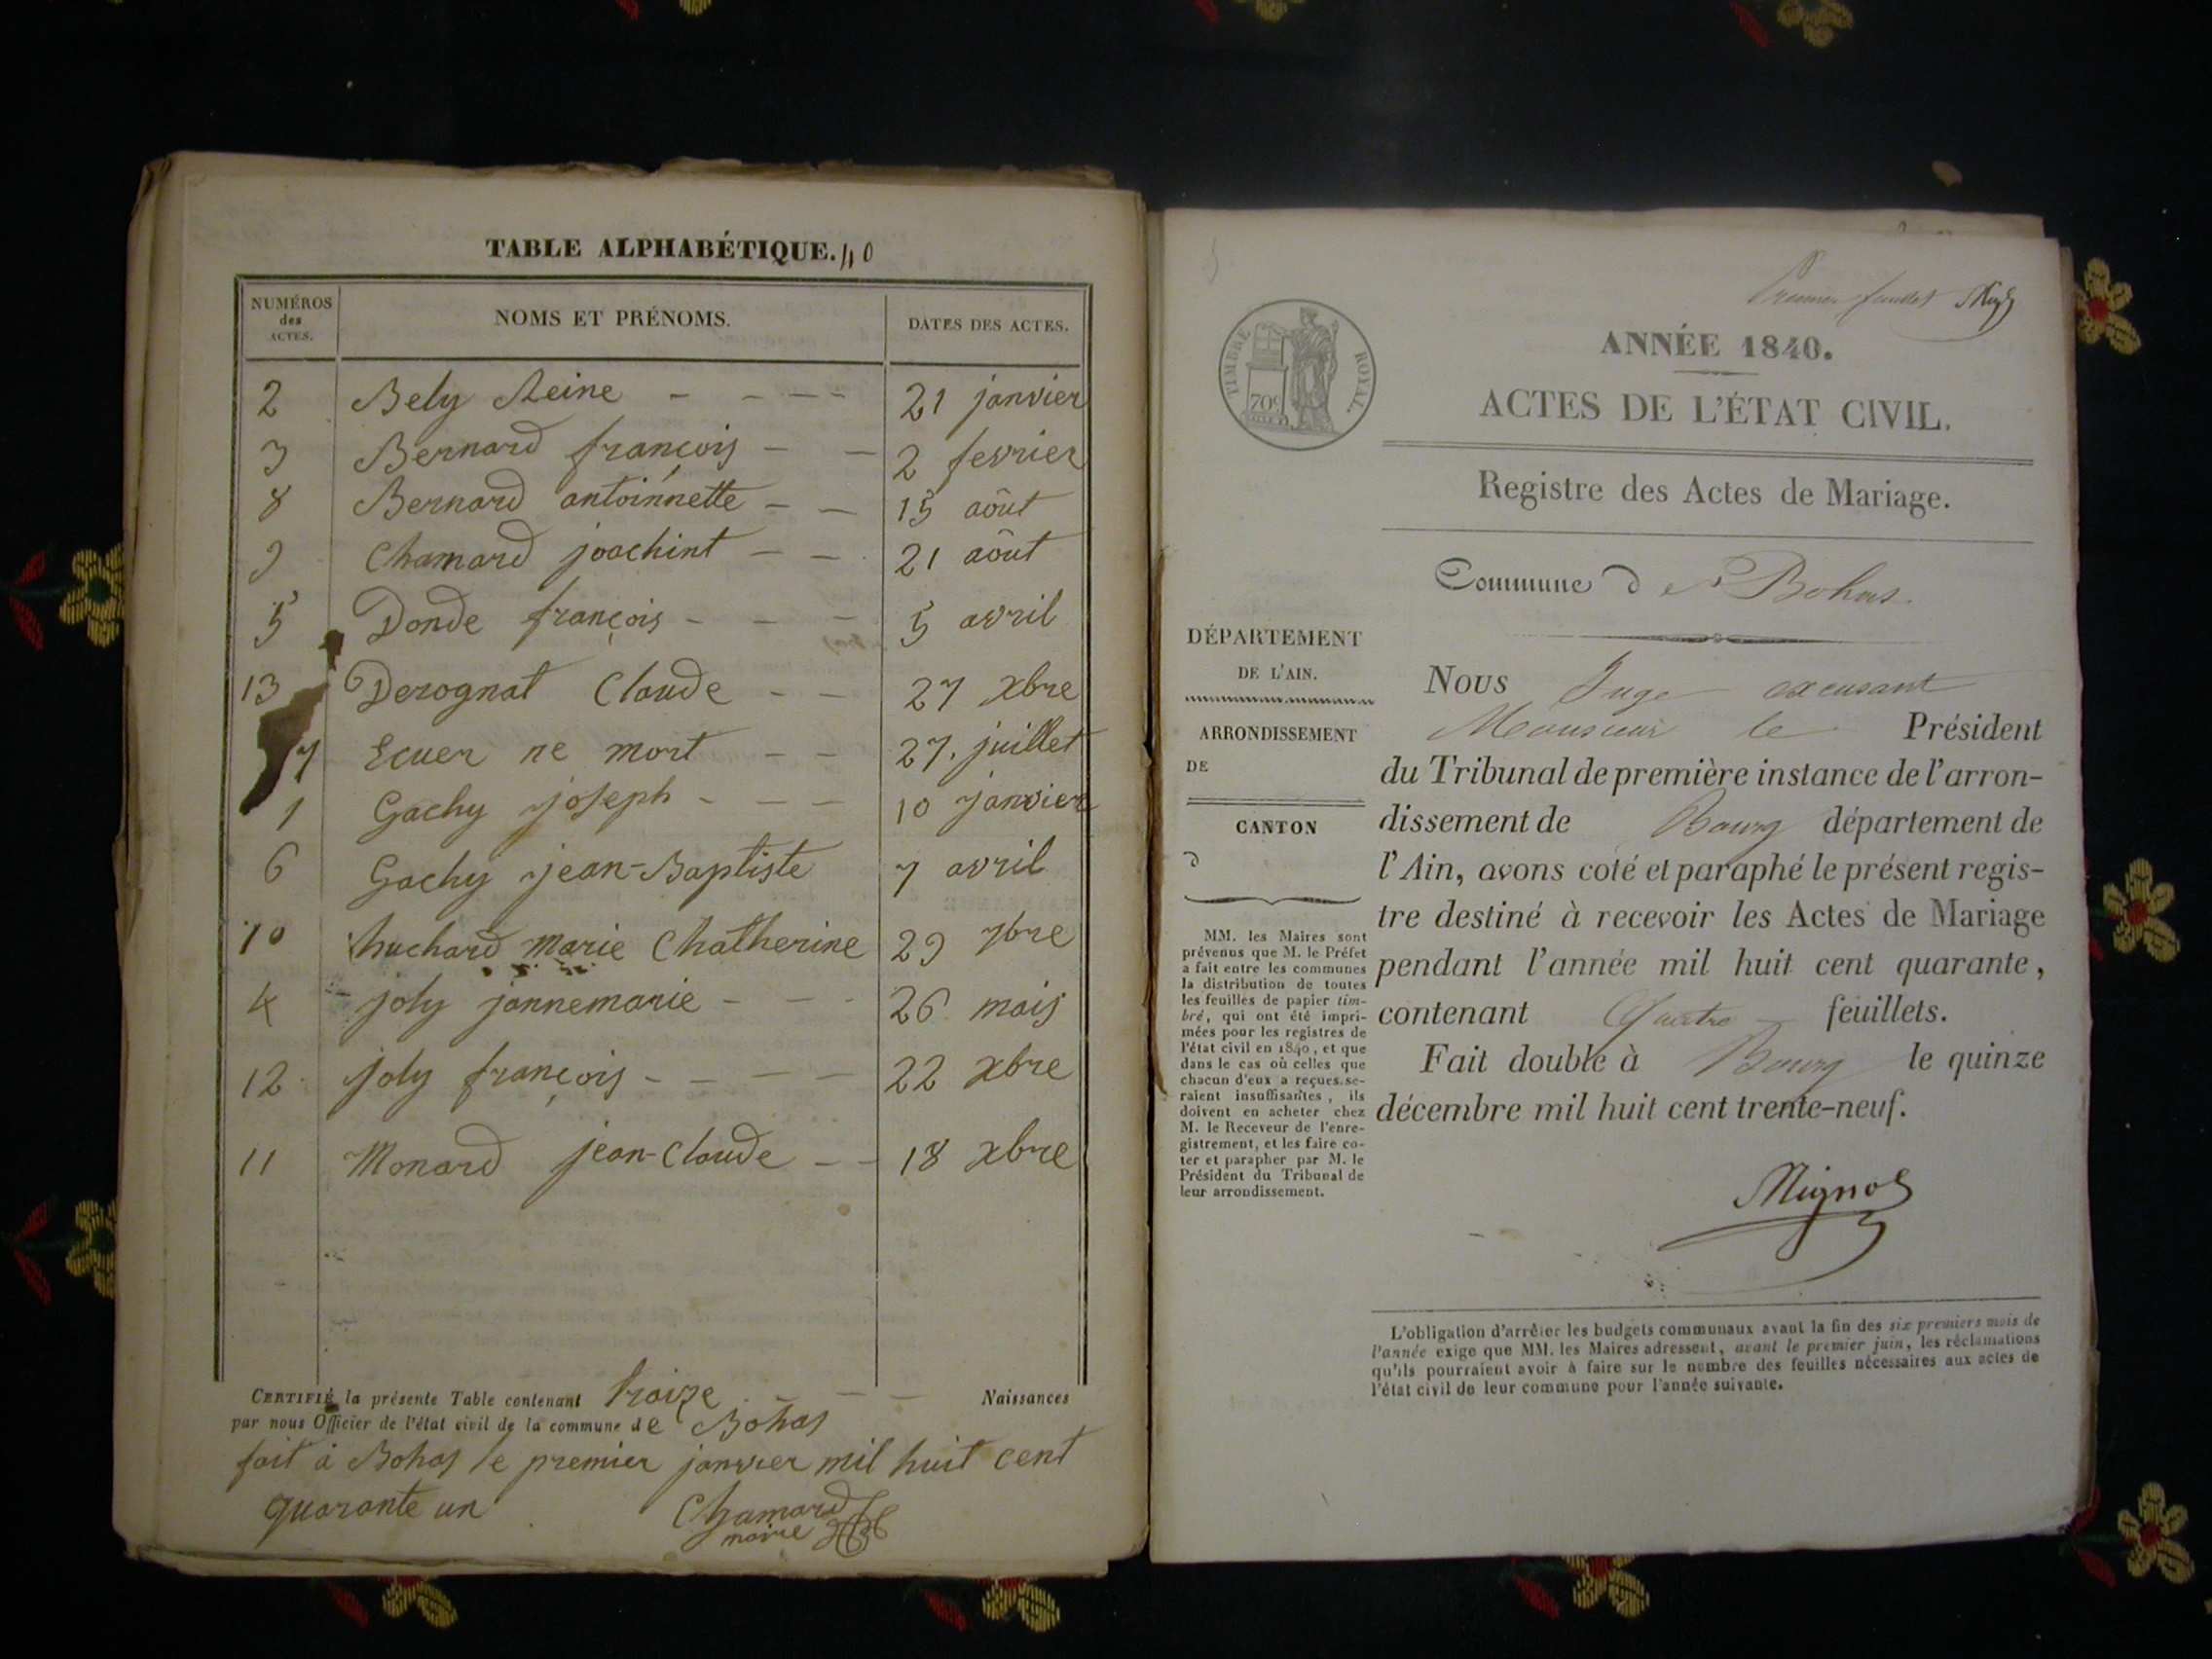 TABLE ALPHABÉTIQUE. 40
NUMÉROS des ACTES. NOMS ET PRÉNOMS. DATES DES ACTES.
2 Bely Reine - - - - 21 janvier
3 Bernard françois - - 2 fevrier
8 Bernard antoinnette - - 15 aôut
9 Chamard joachint - - 21 aôut
5 Donde françois - - - 5 avril
13 Derognat Claude - - 27 xbre
7 Ecuer ne mort - - 27. juillet
1 Gachy joseph - - - 10 janvier
6 Gachy jean-Baptiste 7 avril
10 huchard marie Chatherine 29 7bre
4 joly jannemarie - - - 26 mars
12 joly françois - - - - 22 xbre
11 Monard jean-Claude - - 18 xbre
CERTIFIÉ la présente Table contenant treize - - - Naissances
par nous Officier de l'état civil de la commune de Bohas
fait à Bohas le premier janvier mil huit cent
quarante un
Chamard
maire
Premier feuillet
TIMBRE ROYAL.
70c
ANNÉE 1840.
ACTES DE L'ÉTAT CIVIL.
Registre des Actes de Mariage.
Commune d e Bohas
DÉPARTEMENT
DE L'AIN.
ARRONDISSEMENT
DE
CANTON
d
MM. les Maires sont
prévenus que M. le Préfet
a fait entre les communes
la distribution de toutes
les feuilles de papier tim-
bré, qui ont été impri-
mées pour les registres de
l'état civil en 1840, et que
dans le cas où celles que
chacun d'eux a reçues se-
raient insuffisantes, ils
doivent en acheter chez
M. le Receveur de l'enre-
gistrement, et les faire co-
ter et parapher par M. le
Président du Tribunal de
leur arrondissement.
Nous Juge excusant
Monsieur le Président
du Tribunal de première instance de l'arron-
dissement de Bourg département de
l'Ain, avons coté et paraphé le présent regis-
tre destiné à recevoir les Actes de Mariage
pendant l'année mil huit cent quarante,
contenant Quatre feuillets.
Fait double à Bourg le quinze
décembre mil huit cent trente-neuf.
Mignot
L'obligation d'arrêter les budgets communaux avant la fin des six premiers mois de
l'année exige que MM. les Maires adressent, avant le premier juin, les réclamations
qu'ils pourraient avoir à faire sur le nombre des feuilles nécessaires aux actes de
l'état civil de leur commune pour l'année suivante.